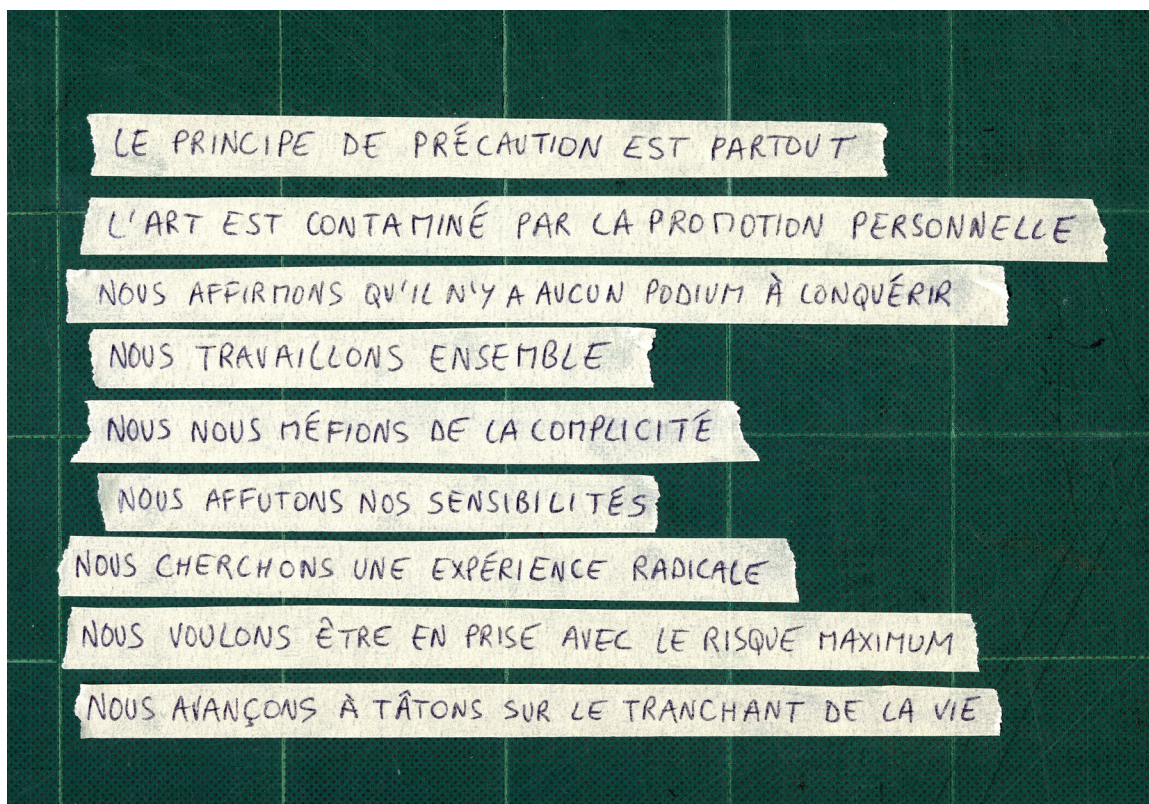 LE PRINCIPE DE PRÉCAUTION EST PARTOUT
L'ART EST CONTAMINÉ PAR LA PROMOTION PERSONNELLE
NOUS AFFIRMONS QU'IL N'Y A AUCUN PODIUM À CONQUÉRIR
NOUS TRAVAILLONS ENSEMBLE
NOUS NOUS MÉFIONS DE LA COMPLICITÉ
NOUS AFFUTONS NOS SENSIBILITÉS
NOUS CHERCHONS UNE EXPÉRIENCE RADICALE
NOUS VOULONS ÊTRE EN PRISE AVEC LE RISQUE MAXIMUM
NOUS AVANÇONS À TÂTONS SUR LE TRANCHANT DE LA VIE